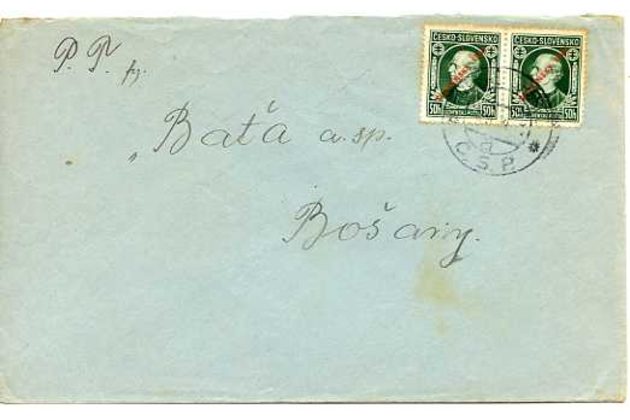 P. T. fy.
ČESKO-SLOVENSKO ČESKO-SLOVENSKO
50h 50h 50h 50h
Č.S.P.
„Baťa a. sp.
Bošany.